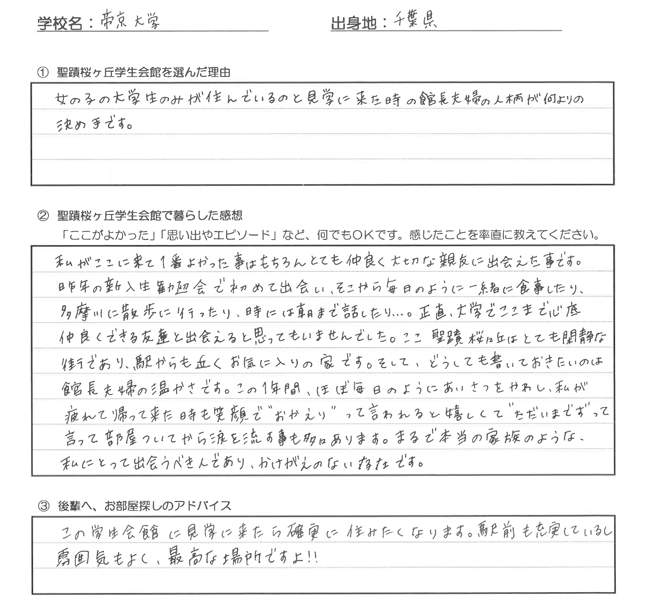 学校名：帝京大学 出身地：千葉県
① 聖蹟桜ヶ丘学生会館を選んだ理由
女の子の大学生のみが住んでいるのと見学に来た時の館長夫婦の人柄が何よりの
決め手です。
② 聖蹟桜ヶ丘学生会館で暮らした感想
「ここがよかった」「思い出やエピソード」など、何でもOKです。感じたことを率直に教えてください。
私がここに来て1番よかった事はもちろんとても仲良く大切な親友に出会えた事です。
昨年の新入生歓迎会で初めて出会い、そこから毎日のように一緒に食事したり、
多摩川に散歩に行ったり、時には朝まで話したり…。正直、大学でここまで心底
仲良くできる友達と出会えると思ってもいませんでした。ここ 聖蹟桜ヶ丘はとても閑静な
街であり、駅からも近くお気に入りの家です。そして、どうしても書いておきたいのは
館長夫婦の温かさです。この1年間、ほぼ毎日のようにあいさつをかわし、私が
疲れて帰って来た時も笑顔で"おかえり"って言われると嬉しくて"ただいまです"って
言って部屋ついてから涙を流す事も多々あります。まるで本当の家族のような、
私にとって出会うべき人であり、かけがえのない存在です。
③ 後輩へ、お部屋探しのアドバイス
この学生会館に見学に来たら確実に住みたくなります。駅前も充実しているし
雰囲気もよく、最高な場所ですよ!!